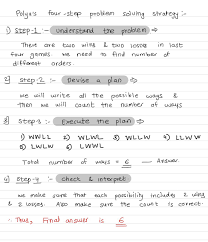 Polya's four-step problem solving strategy :-
1) STEP-1 :- Understand the problem ⇒
There are two wins & two losses in last
four games. We need to find number of
different orders.
2) Step-2 :- Devise a plan ⇒
We will write all the possible ways &
then we will count the number of ways.
3) Step-3 :- Execute the plan ⇒
① WWLL ② WLWL ③ WLLW ④ LLWW
⑤ LWLW ⑥ LWWL
Total number of ways = 6 — Answer.
4) Step-4 :- Check & interpret ⇒
We make sure that each possibility includes 2 wins
& 2 losses. Also make sure the count is correct.
∴ Thus, Final answer is 6